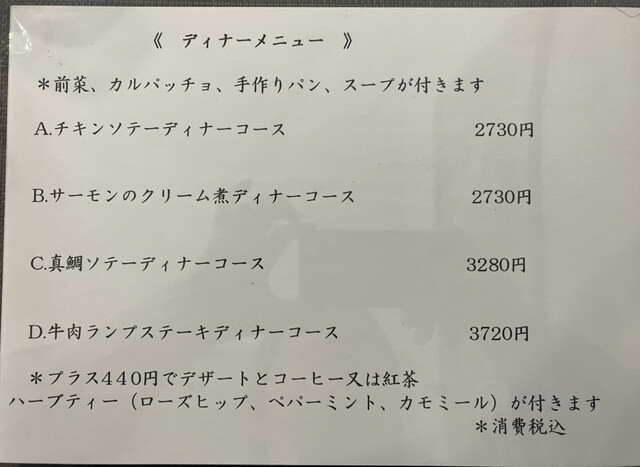 《　ディナーメニュー　》
＊前菜、カルパッチョ、手作りパン、スープが付きます
A.チキンソテーディナーコース　2730円
B.サーモンのクリーム煮ディナーコース　2730円
C.真鯛ソテーディナーコース　3280円
D.牛肉ランプステーキディナーコース　3720円
＊プラス４４０円でデザートとコーヒー又は紅茶
ハーブティー（ローズヒップ、ペパーミント、カモミール）が付きます
＊消費税込